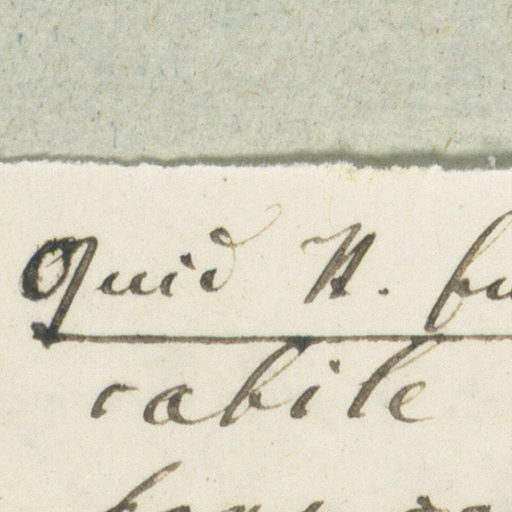 Quid H. fu
cabile